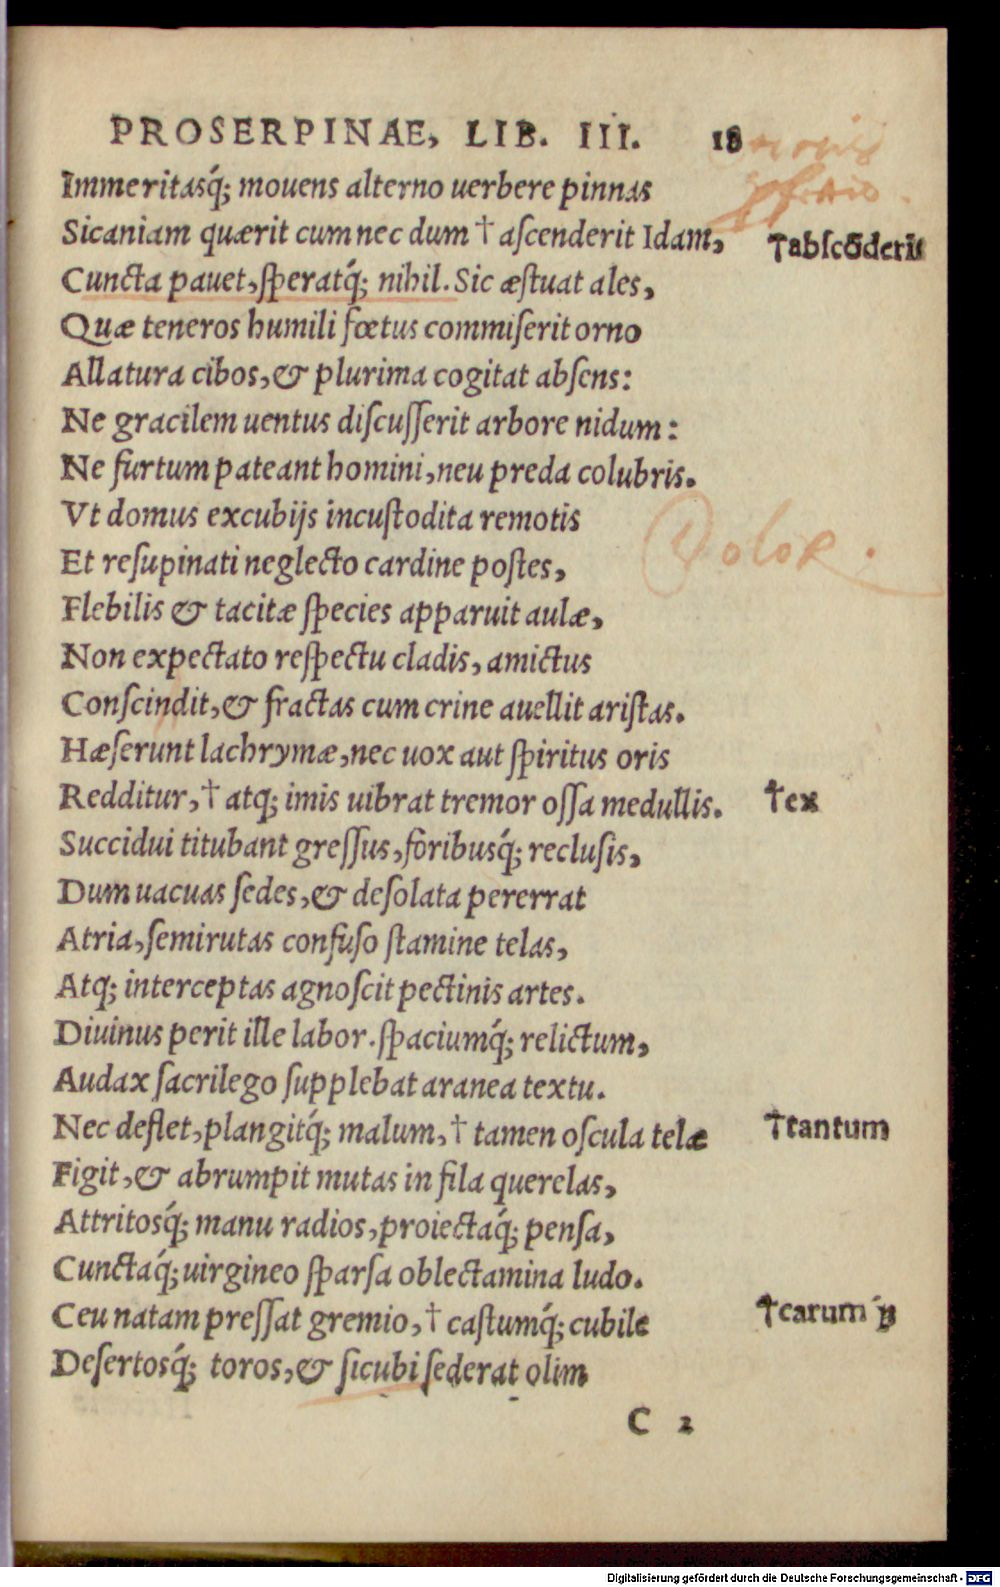 PROSERPINAE, LIB. III. 18
Immeritasq́; mouens alterno uerbere pinnas
Sicaniam quærit cum nec dum † aſcenderit Idam, †abſcōderit
Cuncta pauet, ſperatq́; nihil. Sic æſtuat ales,
Quæ teneros humili fœtus commiſerit orno
Allatura cibos, & plurima cogitat abſens:
Ne gracilem uentus diſcuſſerit arbore nidum:
Ne furtum pateant homini, neu preda colubris.
Vt domus excubijs incuſtodita remotis
Dolor.
Et reſupinati neglecto cardine poſtes,
Flebilis & tacitæ ſpecies apparuit aulæ,
Non expectato reſpectu cladis, amictus
Conſcindit, & fractas cum crine auellit ariſtas.
Hæſerunt lachrymæ, nec uox aut ſpiritus oris
Redditur, † atq; imis uibrat tremor oſſa medullis. †ex
Succidui titubant greſſus, foribusq́; recluſis,
Dum uacuas ſedes, & deſolata pererrat
Atria, ſemirutas confuſo ſtamine telas,
Atq; interceptas agnoſcit pectinis artes.
Diuinus perit ille labor. ſpaciumq́; relictum,
Audax ſacrilego ſupplebat aranea textu.
Nec deflet, plangitq́; malum, † tamen oſcula telæ †tantum
Figit, & abrumpit mutas in fila querelas,
Attritosq́; manu radios, proiectaq́; penſa,
Cunctaq́; uirgineo ſparſa oblectamina ludo.
Ceu natam preſſat gremio, † caſtumq́; cubile †carum
Deſertosq́; toros, & ſicubi ſederat olim
C 2
Digitalisierung gefördert durch die Deutsche Forschungsgemeinschaft - DFG